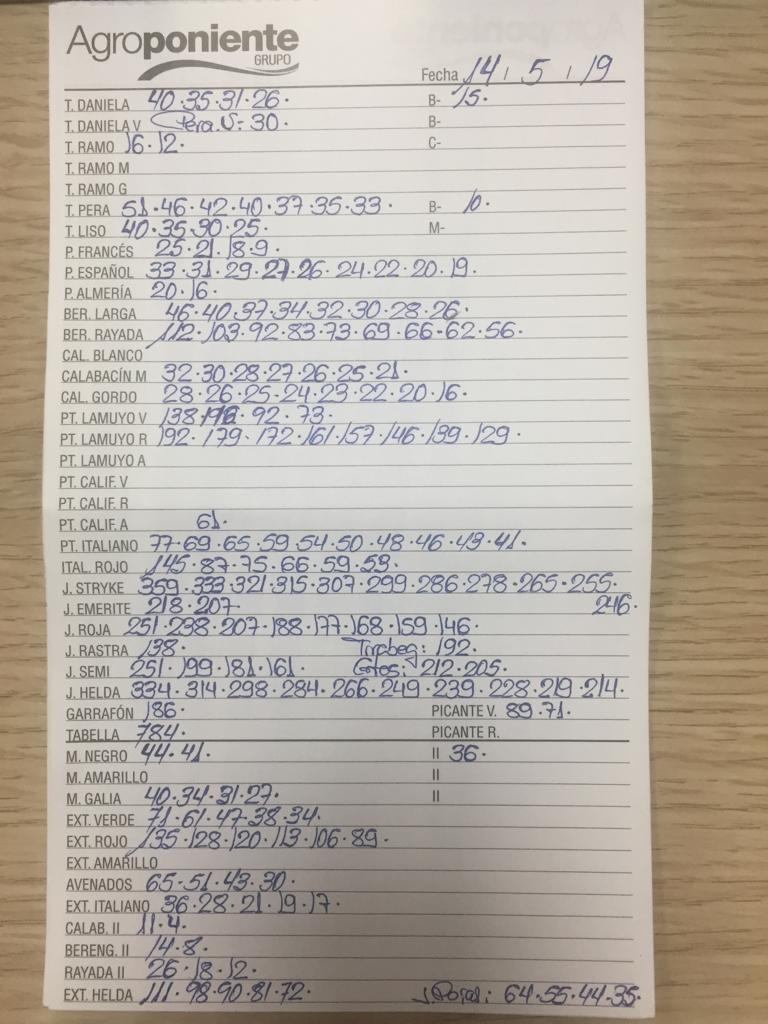 Agroponiente
GRUPO
Fecha 14 / 5 / 19
T. DANIELA 40·35·31·26· B- 15·
T. DANIELA V Pera.V: 30· B-
T. RAMO 16·12· C-
T. RAMO M
T. RAMO G
T. PERA 51·46·42·40·37·35·33· B- 10·
T. LISO 40·35·30·25· M-
P. FRANCÉS 25·21·18·9·
P. ESPAÑOL 33·31·29·27·26·24·22·20·19·
P. ALMERÍA 20·16·
BER. LARGA 46·40·37·34·32·30·28·26·
BER. RAYADA 112·103·92·83·73·69·66·62·56·
CAL. BLANCO
CALABACÍN M 32·30·28·27·26·25·21·
CAL. GORDO 28·26·25·24·23·22·20·16·
PT. LAMUYO V 138· 92·73·
PT. LAMUYO R 192·179·172·161·157·146·139·129·
PT. LAMUYO A
PT. CALIF. V
PT. CALIF. R
PT. CALIF. A 61·
PT. ITALIANO 77·69·65·59·54·50·48·46·43·41·
ITAL. ROJO 145·87·75·66·59·53·
J. STRYKE 359·333·321·315·307·299·286·278·265·255·
J. EMERITE 218·207· 246·
J. ROJA 251·238·207·188·177·168·159·146·
J. RASTRA 138· Tirabeq: 192·
J. SEMI 251·199·181·161· 212·205·
J. HELDA 334·314·298·284·266·249·239·228·219·214·
GARRAFÓN 186· PICANTE V. 89·71·
TABELLA 784· PICANTE R.
M. NEGRO 44·41· II 36·
M. AMARILLO II
M. GALIA 40·34·31·27· II
EXT. VERDE 71·61·47·38·34·
EXT. ROJO 135·128·120·113·106·89·
EXT. AMARILLO
AVENADOS 65·51·43·30·
EXT. ITALIANO 36·28·21·19·17·
CALAB. II 11·4·
BERENG. II 14·8·
RAYADA II 26·18·12·
EXT. HELDA 111·98·90·81·72· 64·55·44·35·